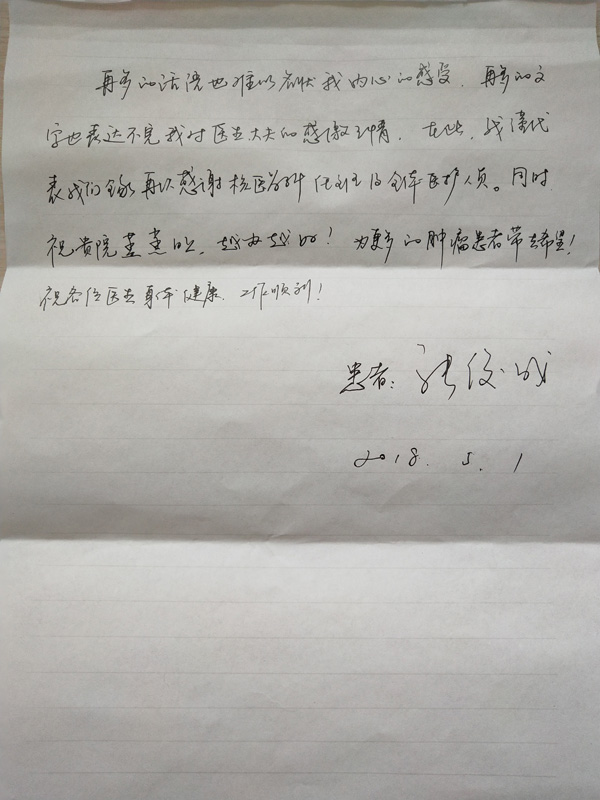 再多的话语也难以名状我内心的感受，再多的文
字也表达不完我对医生大夫的感激之情。在此，我谨代
表我们全家再次感谢核医学科任主任及全体医护人员。同时
祝贵院蒸蒸日上，越办越好！为更多的肿瘤患者带去希望！
祝各位医生身体健康、工作顺利！
患者：张俊成
2018.5.1